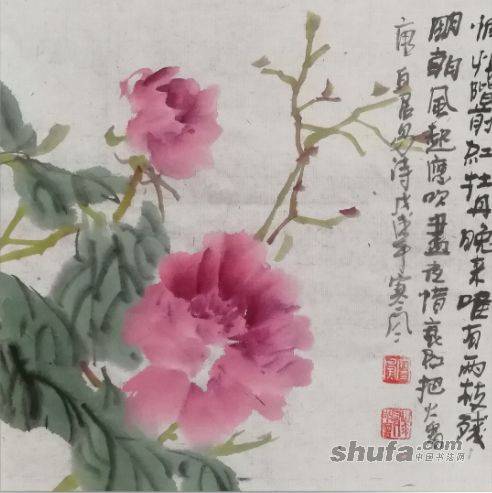 惆怅階前红牡丹晚来唯有两枝残
明朝风起應吹盡夜惜衰红把火看
唐白居易诗戊戌年寒风
shufa.com
中国书法网